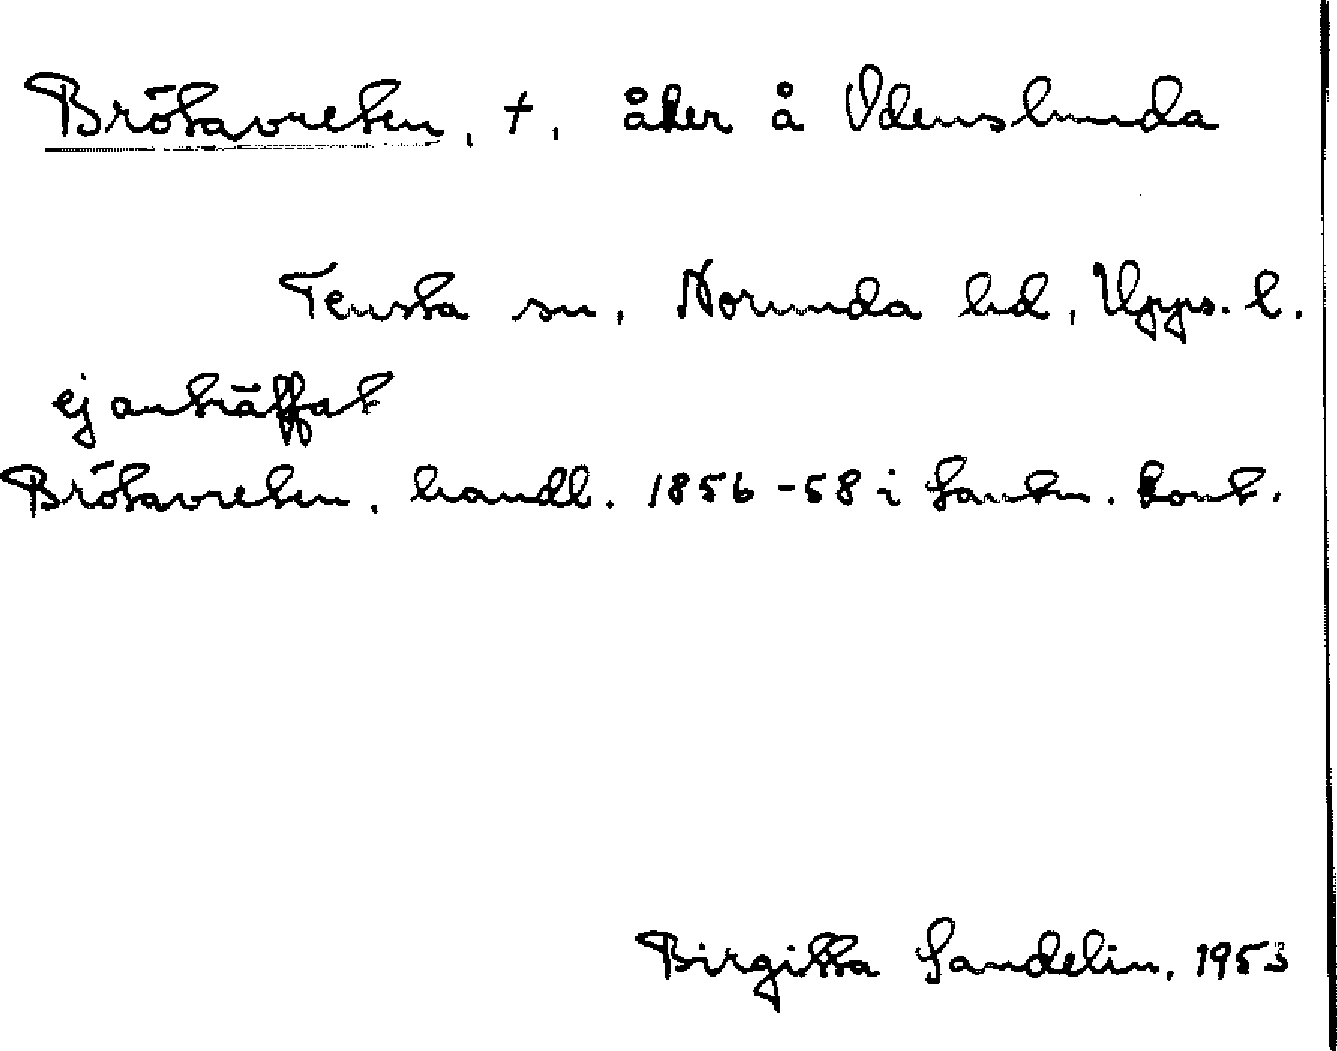 Brötavreten, †, åker å Odenslunda
Tensta sn, Norunda hd, Upps. l.
ej anträffat
Brötavreten, handl. 1856-58 i Lantm. kont.
Birgitta Sandelin, 1953